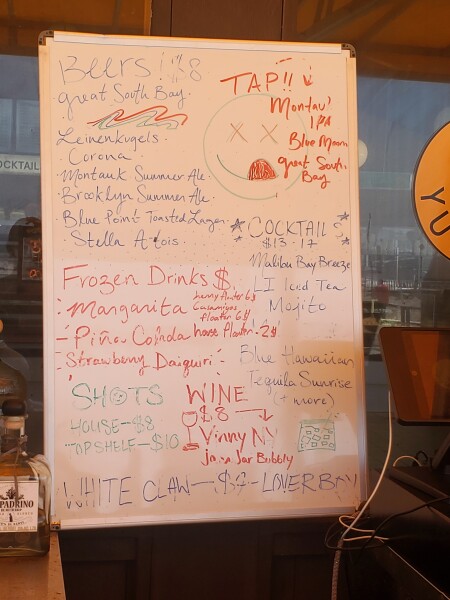 Beers! $8
Great South Bay
Leinenkugels
Corona
Montauk Summer Ale
Brooklyn Summer Ale
Blue Point Toasted Lager
Stella
TAP!!
IPA
Blue Moon
great South
Bay
COCKTAIL
$13-17
Malibu Bay Breeze
LI Iced Tea
Mojito
Blue Hawaiian
Tequila Sunrise
(+ more)
Frozen Drinks $
Margarita
floater 6$
- Piñea Colada house floater! 2$
- Strawberry Daiquiri
SHOTS
HOUSE-$8
TOPSHELF-$10
WINE
$8
Vinny NY
Bubbly
WHITE CLAW-$7-
COCKTAIL
YU
PADRINO